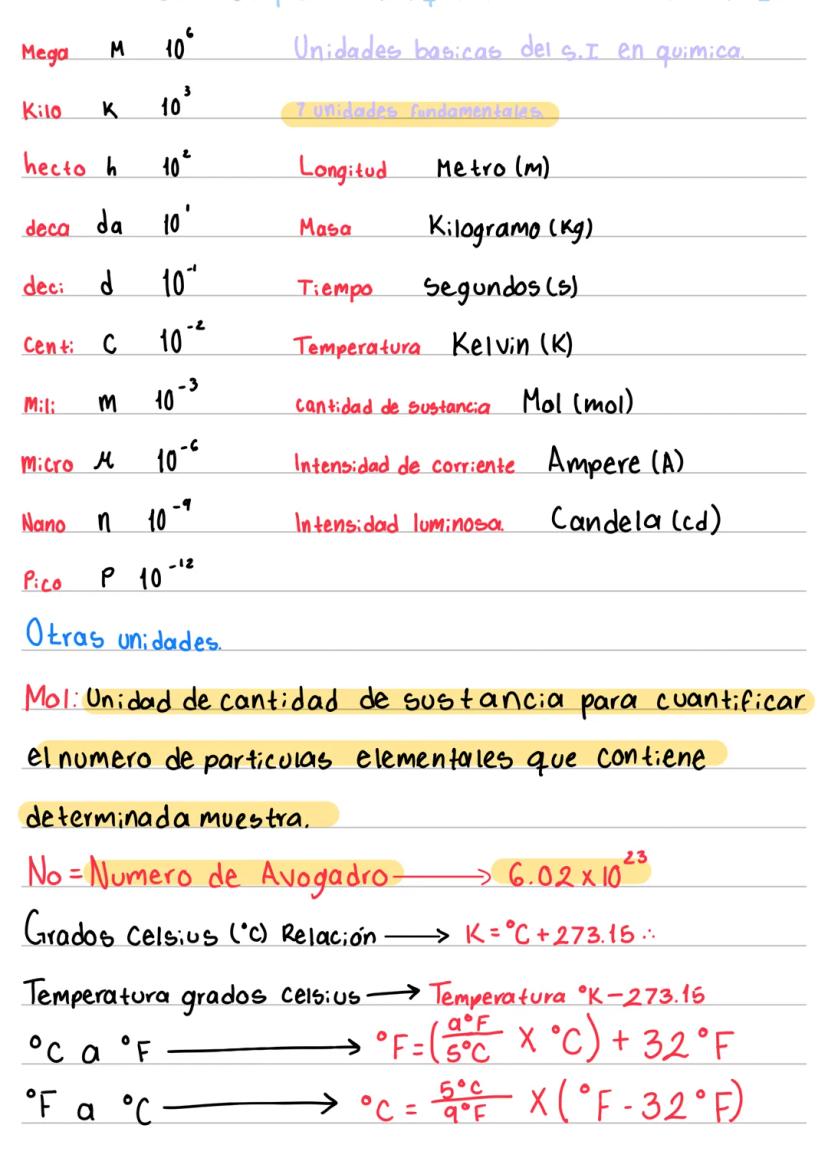 Mega M 10⁶ Unidades basicas del s.I en quimica.
Kilo K 10³ 7 unidades fundamentales
hecto h 10² Longitud Metro (m)
deca da 10¹ Masa Kilogramo (Kg)
deci d 10⁻¹ Tiempo Segundos (s)
Centi C 10⁻² Temperatura Kelvin (K)
Mili m 10⁻³ Cantidad de sustancia Mol (mol)
Micro μ 10⁻⁶ Intensidad de corriente Ampere (A)
Nano n 10⁻⁹ Intensidad luminosa. Candela (cd)
Pico P 10⁻¹²
Otras unidades.
Mol: Unidad de cantidad de sustancia para cuantificar
el numero de particulas elementales que contiene
determinada muestra.
No = Numero de Avogadro → 6.02 x 10²³
Grados Celsius (°C) Relación → K = °C + 273.15 ∴
Temperatura grados celsius → Temperatura °K - 273.15
°C a °F → °F = (9°F/5°C X °C) + 32°F
°F a °C → °C = 5°C/9°F X (°F - 32°F)